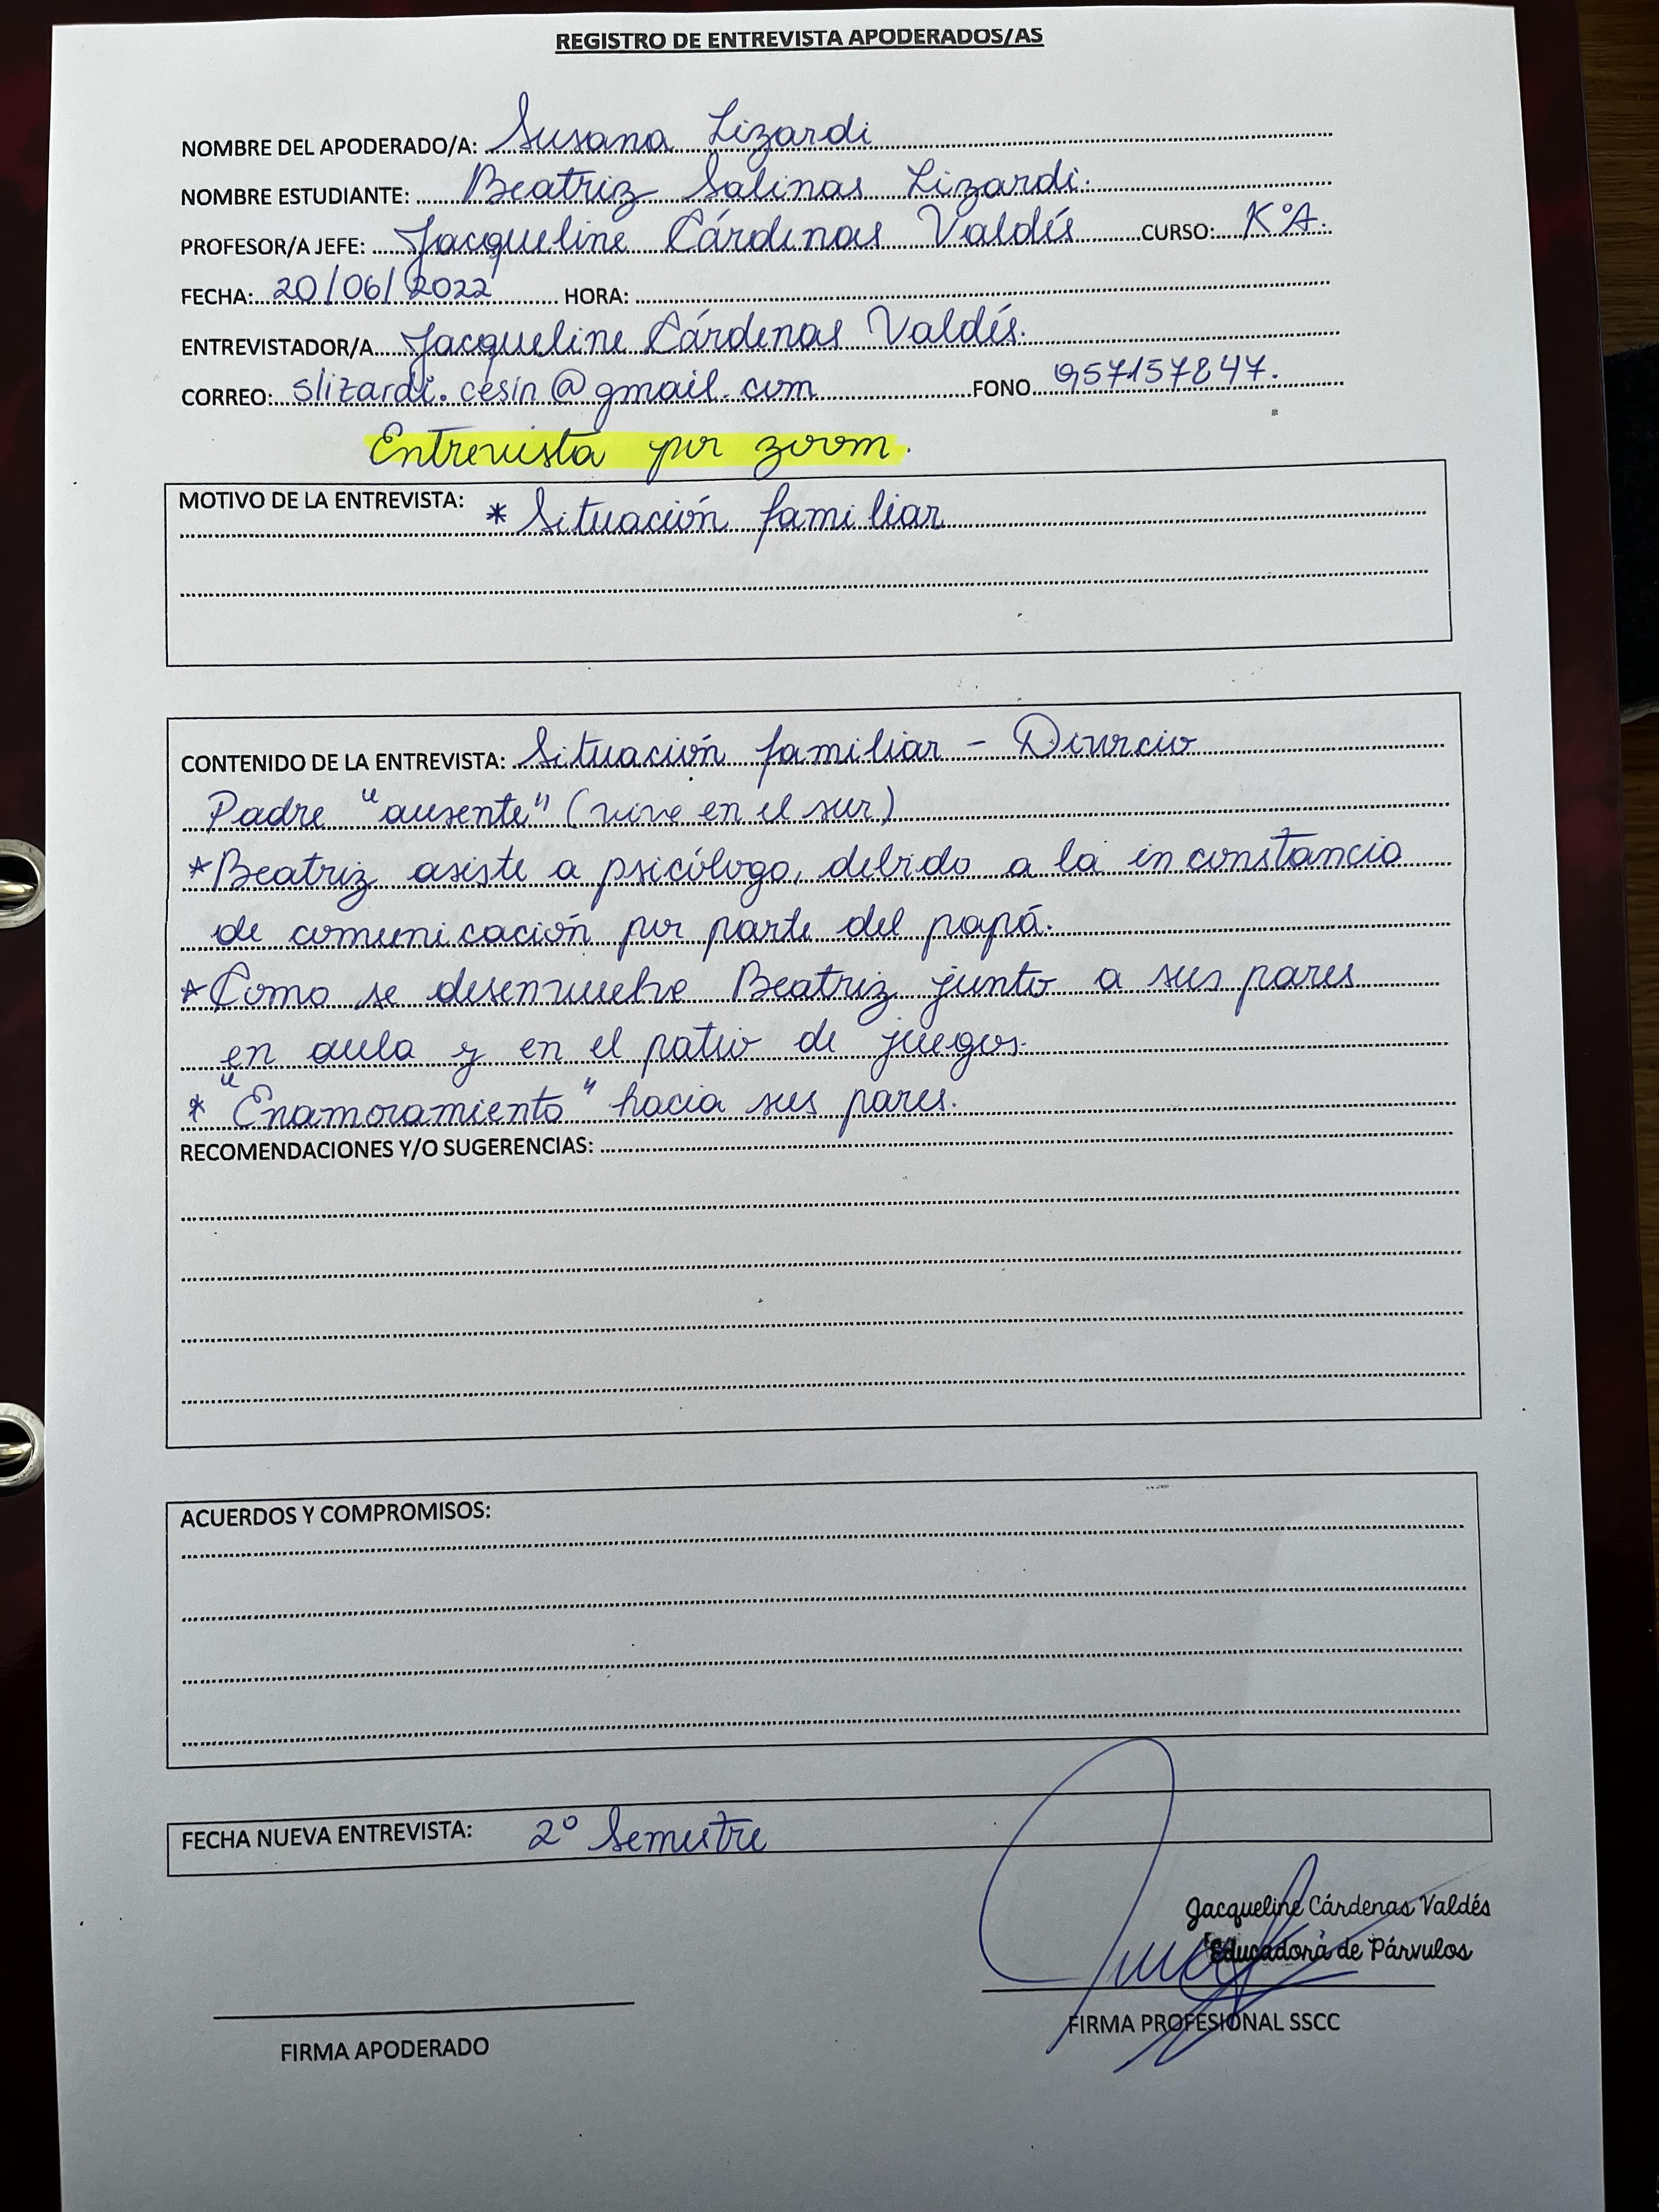 REGISTRO DE ENTREVISTA APODERADOS/AS
NOMBRE DEL APODERADO/A: Susana Lizardi
NOMBRE ESTUDIANTE: Beatriz Salinas Lizardi.
PROFESOR/A JEFE: Jacqueline Cárdenas Valdés CURSO: K°A.
FECHA: 20/06/2022 HORA:
ENTREVISTADOR/A Jacqueline Cárdenas Valdés.
CORREO: slizardi.cesin@gmail.com FONO 957157847.
Entrevista por zoom.
MOTIVO DE LA ENTREVISTA: * Situación familiar
CONTENIDO DE LA ENTREVISTA: Situación familiar - Divorcio
Padre "ausente" (vive en el sur)
*Beatriz asiste a psicólogo, debido a la inconstancia
de comunicación por parte del papá.
*Como se desenvuelve Beatriz junto a sus pares
en aula y en el patio de juegos.
* "Enamoramiento" hacia sus pares.
RECOMENDACIONES Y/O SUGERENCIAS:
ACUERDOS Y COMPROMISOS:
FECHA NUEVA ENTREVISTA: 2° Semestre
Jacqueline Cárdenas Valdés
Educadora de Párvulos
FIRMA APODERADO
FIRMA PROFESIONAL SSCC